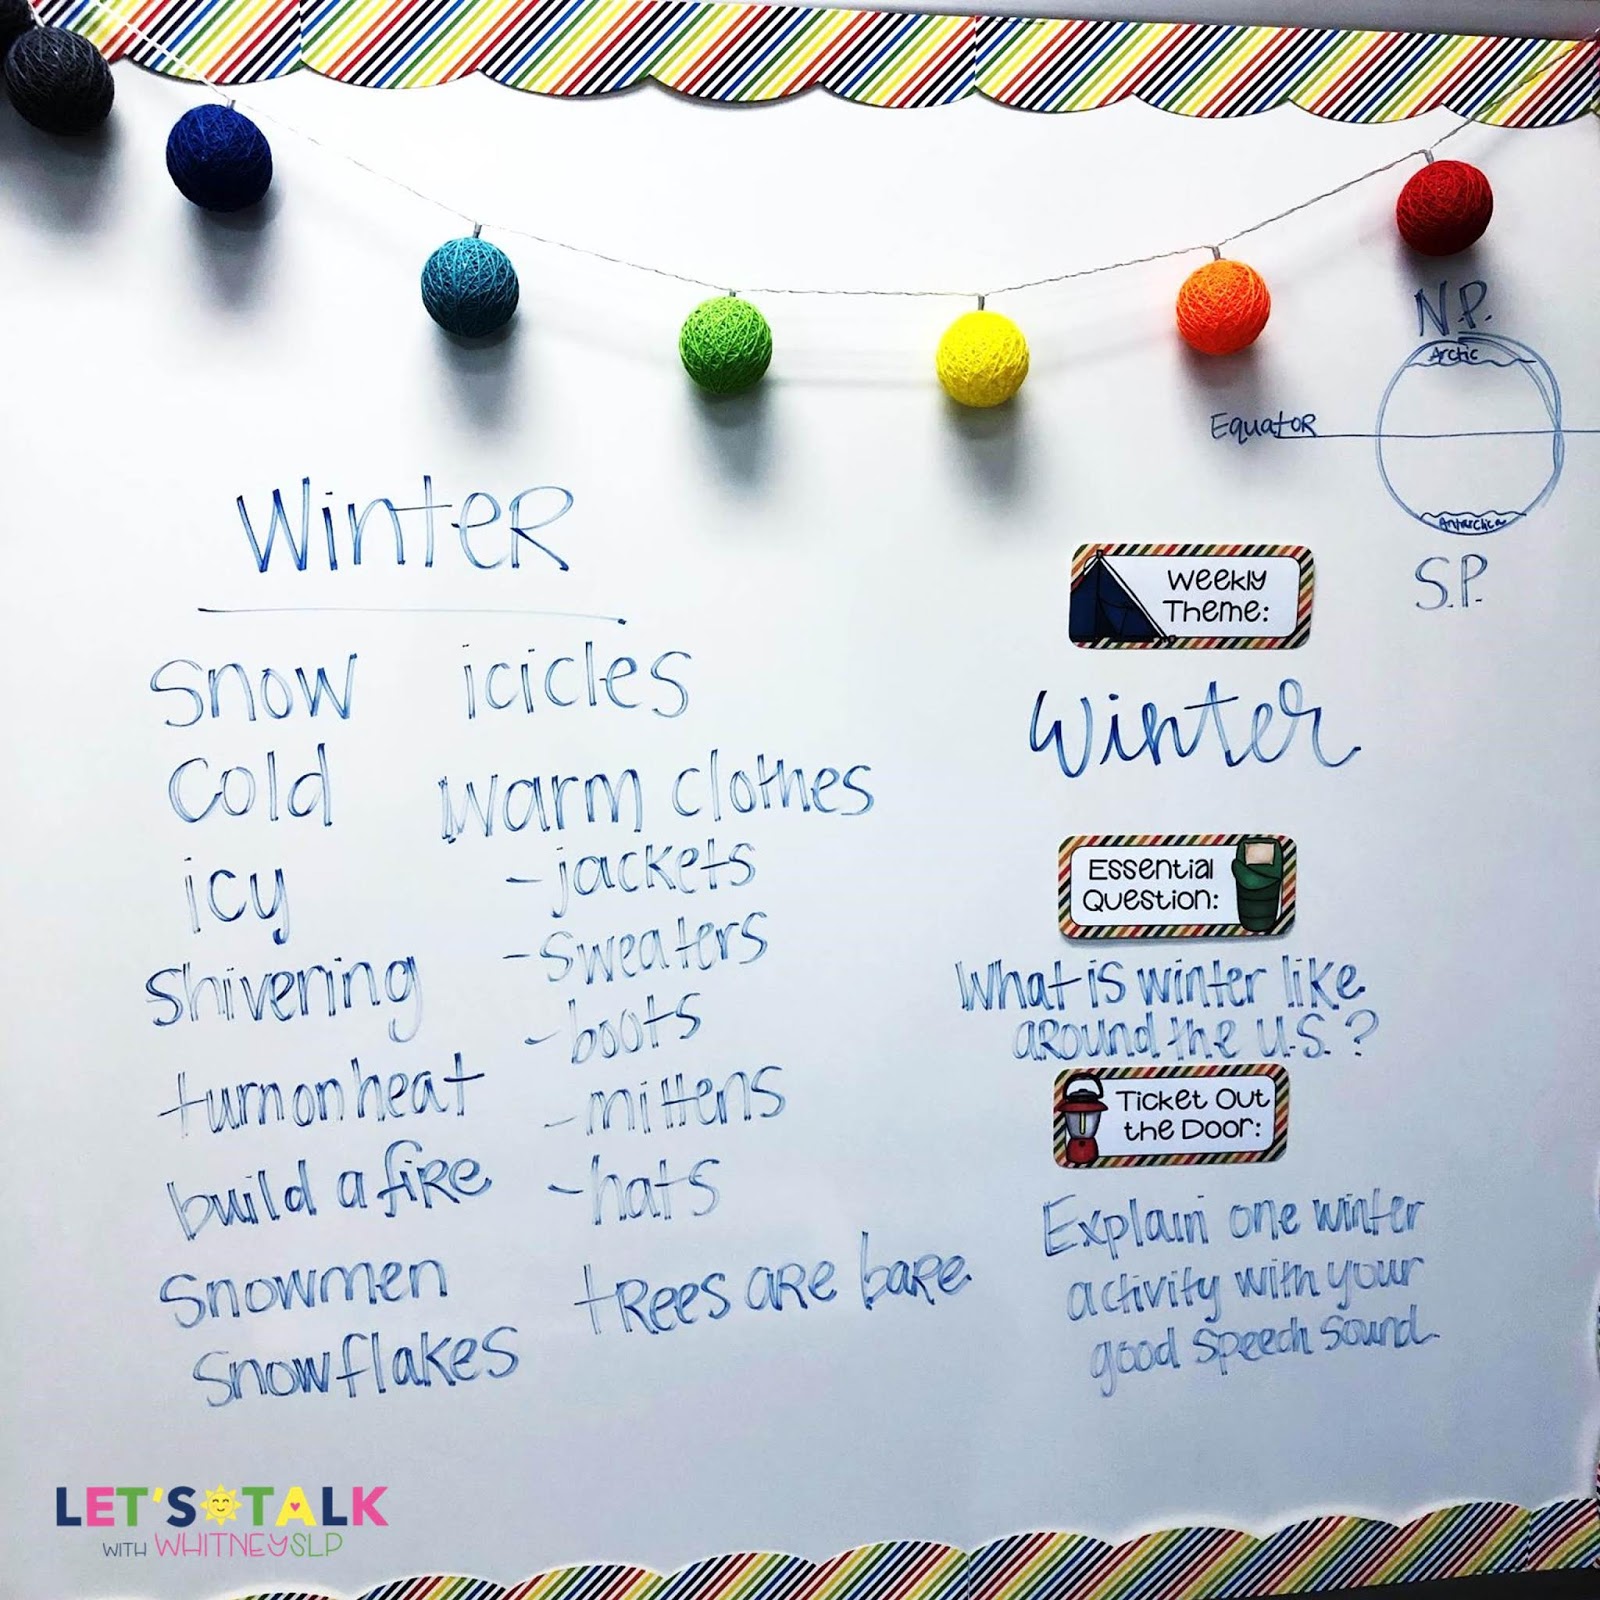 N.P.
Arctic
Equator
Antarctica
S.P.
Winter
snow
cold
icy
shivering
turn on heat
build a fire
snowmen
snowflakes
icicles
warm clothes
- jackets
- sweaters
- boots
- mittens
- hats
trees are bare
Weekly
Theme:
Winter
Essential
Question:
What is winter like
around the U.S.?
Ticket Out
the Door:
Explain one winter
activity with your
good speech sound.
LET'S TALK
WITH WHITNEYSLP